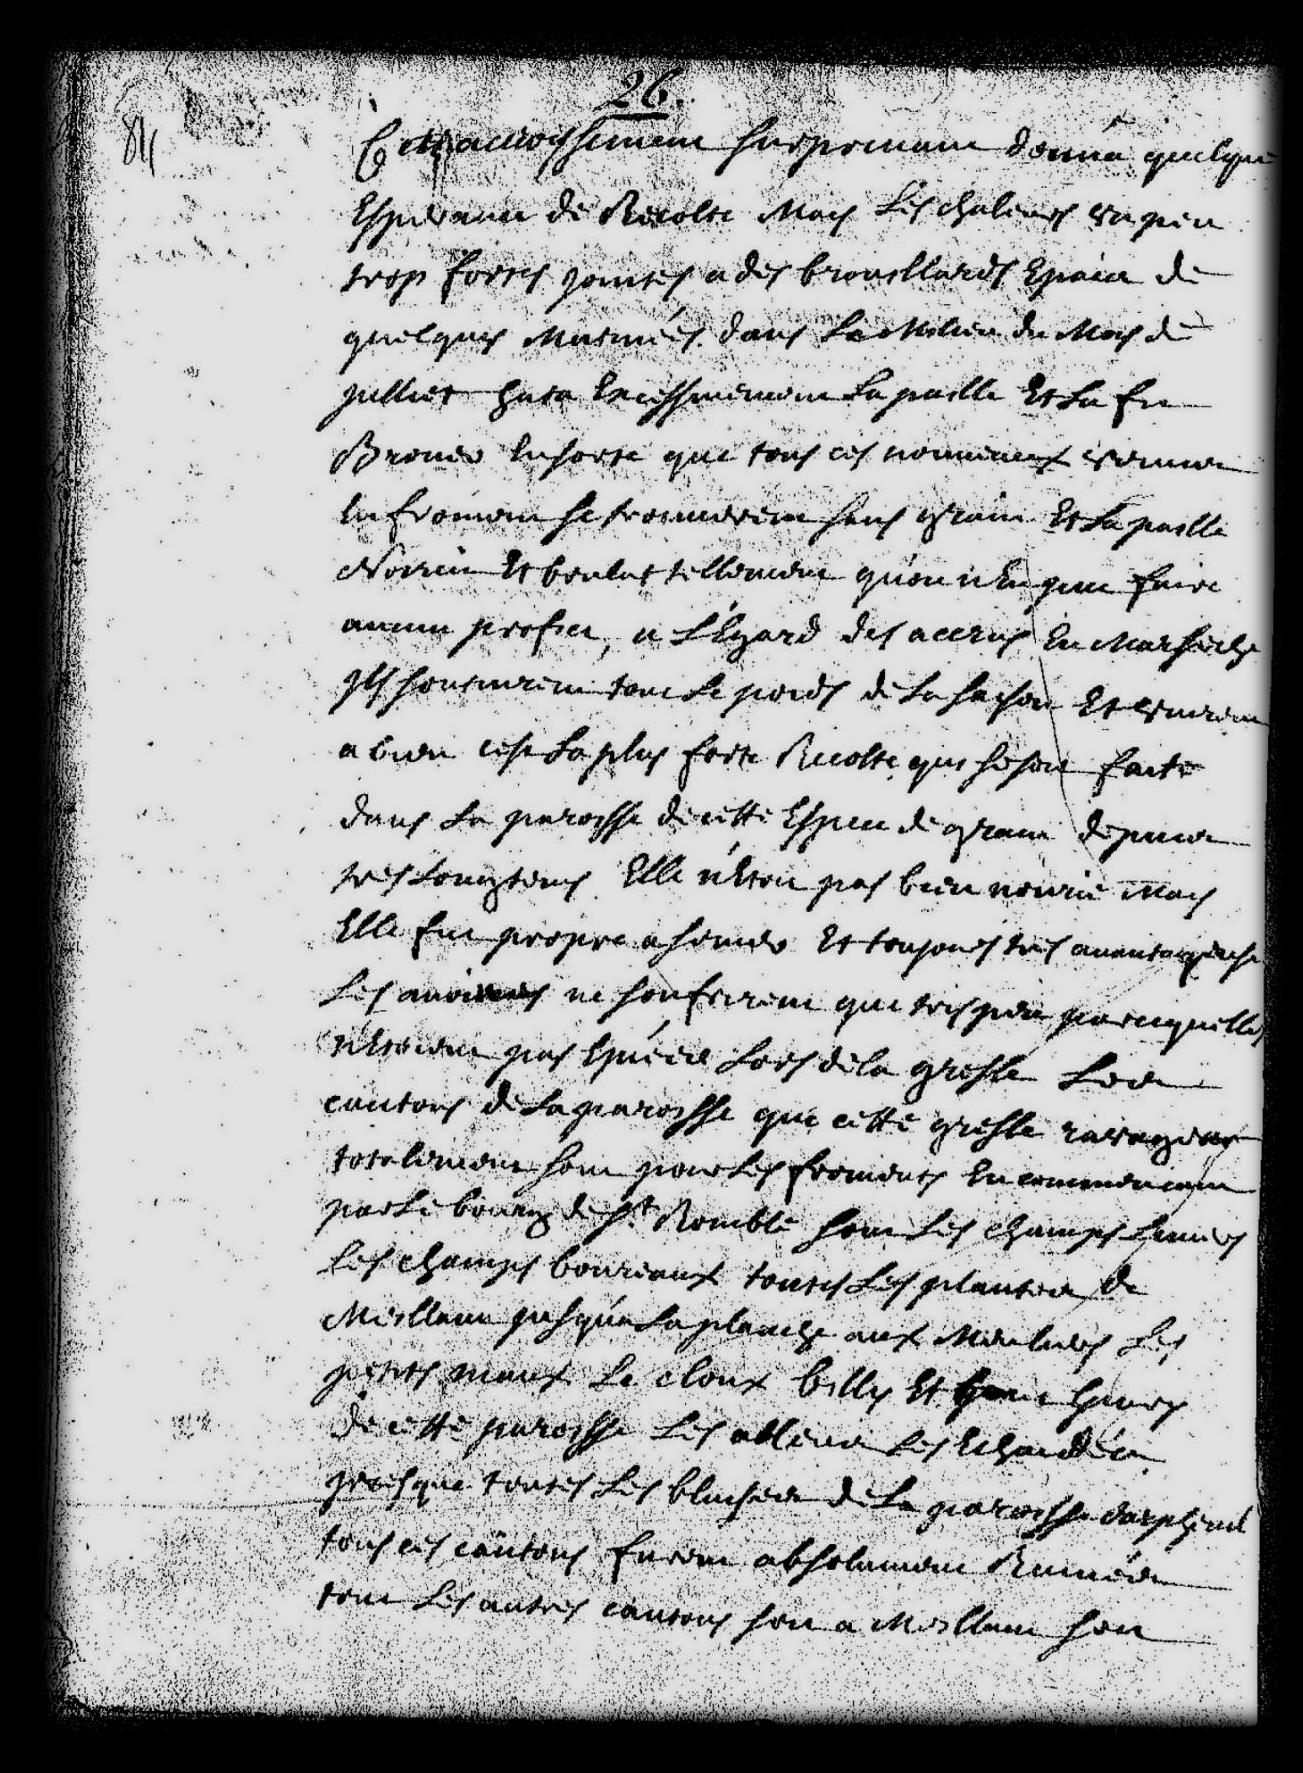 26.
84
Cet accroissement surprenant donna quelque
Esperance de Recolte Mais Les chaleurs un peu
trop fortes jointes a des brouillards Epaix de
quelques Matinées dans Le Milieu du Mois de
juillet hata Excessivement La paille Et La fit
Brouir Ensorte que tous ces nouveaux venus
En froment se trouverent sans grain Et La paille
Noircie Et brulée tellement qu'on n'En peut faire
aucun profit, a L'Egard des accrus En Marseche
jls soutinrent tout Le poids de La saison Et vinrent
a bien c'est La plus forte Recolte qui se soit faite
dans La paroisse de cette Espece de grain depuis
tres Longtems Elle n'Etoit pas bien nourie mais
Elle fut propre a semer Et toujours tres avantageuse
Les avoines ne souffrirent que tres peu parcequelles
n'Etoient pas Epiées Lors de la gresle Les
cantons de La paroisse que cette gresle ravagea
totalement sont pour Les froments En commencant
par Le bourg de St Romble sont Les champs
Les champs bouriaux toutes Les plantes de
Meillant jusqu'a La planche aux Les
petits maux Le cloux billy Et
de cette paroisse Les Les
presque toutes Les de La paroisse
tous ces cantons furent absolument Ruinés
tout Les autres cantons soit a Meillant soit